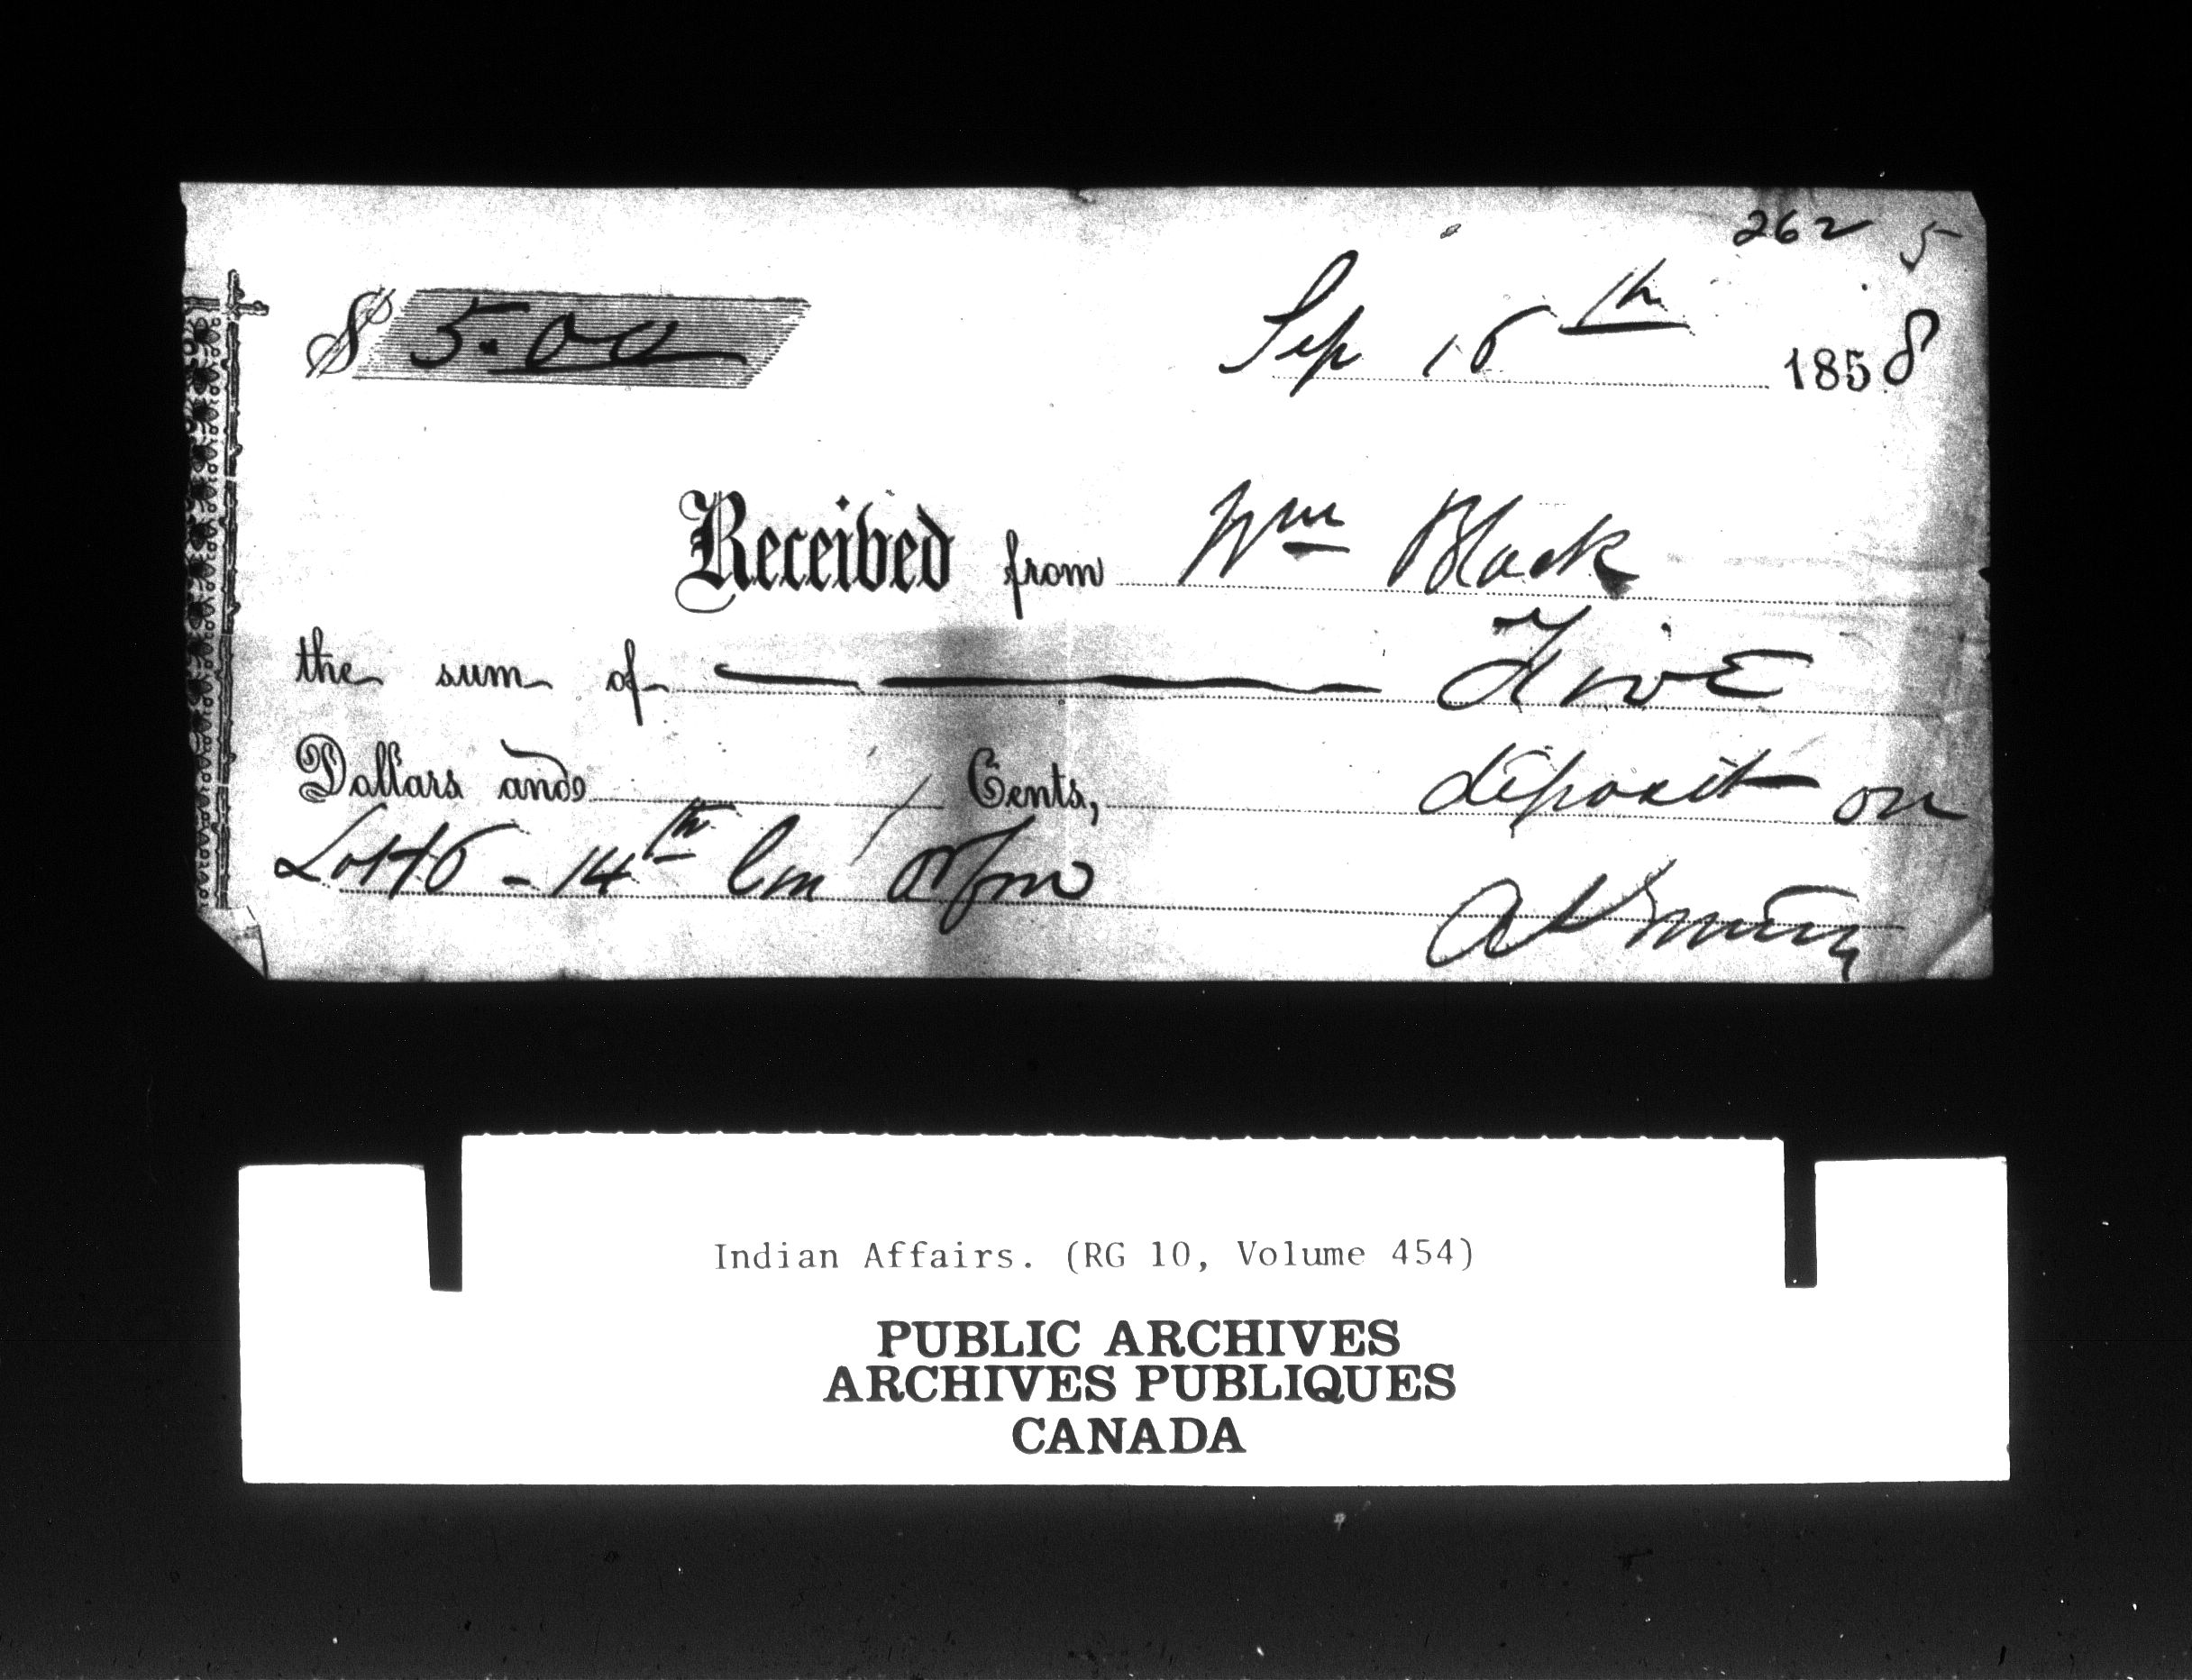 262 5
$ 5.00 Sep 15th 1858
Received from Wm Black
the sum of Five
Dollars and Cents, deposit on
14th Con
Indian Affairs. (RG 10, Volume 454)
PUBLIC ARCHIVES
ARCHIVES PUBLIQUES
CANADA